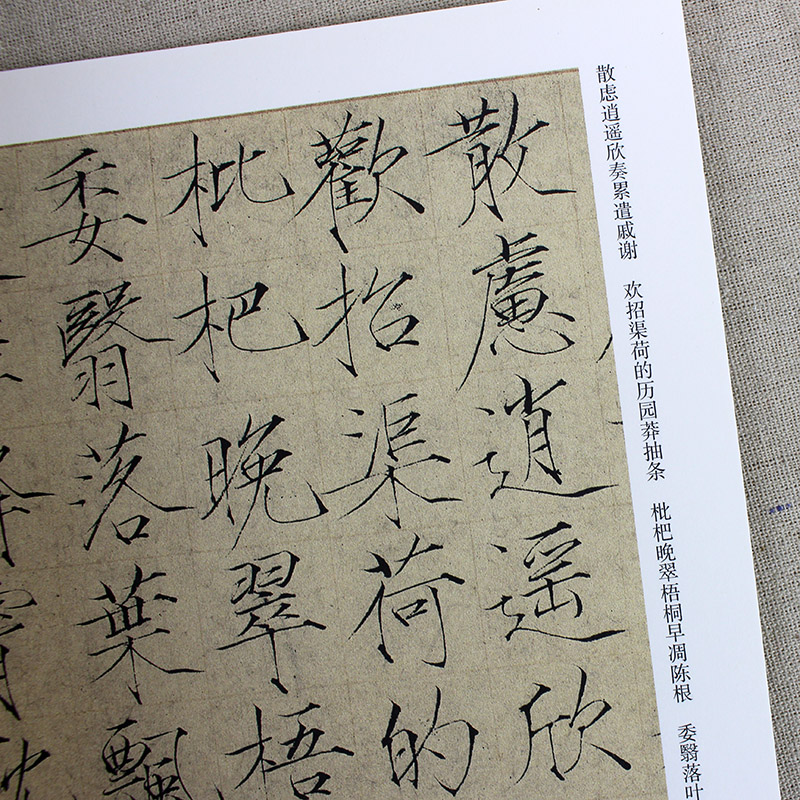 散虑逍遥欣奏累遣戚谢 欢招渠荷的历园莽抽条 枇杷晚翠梧桐早凋陈根 委翳落叶
散慮逍遥欣
歡招渠荷的
枇杷晚翠梧
委翳落葉飄